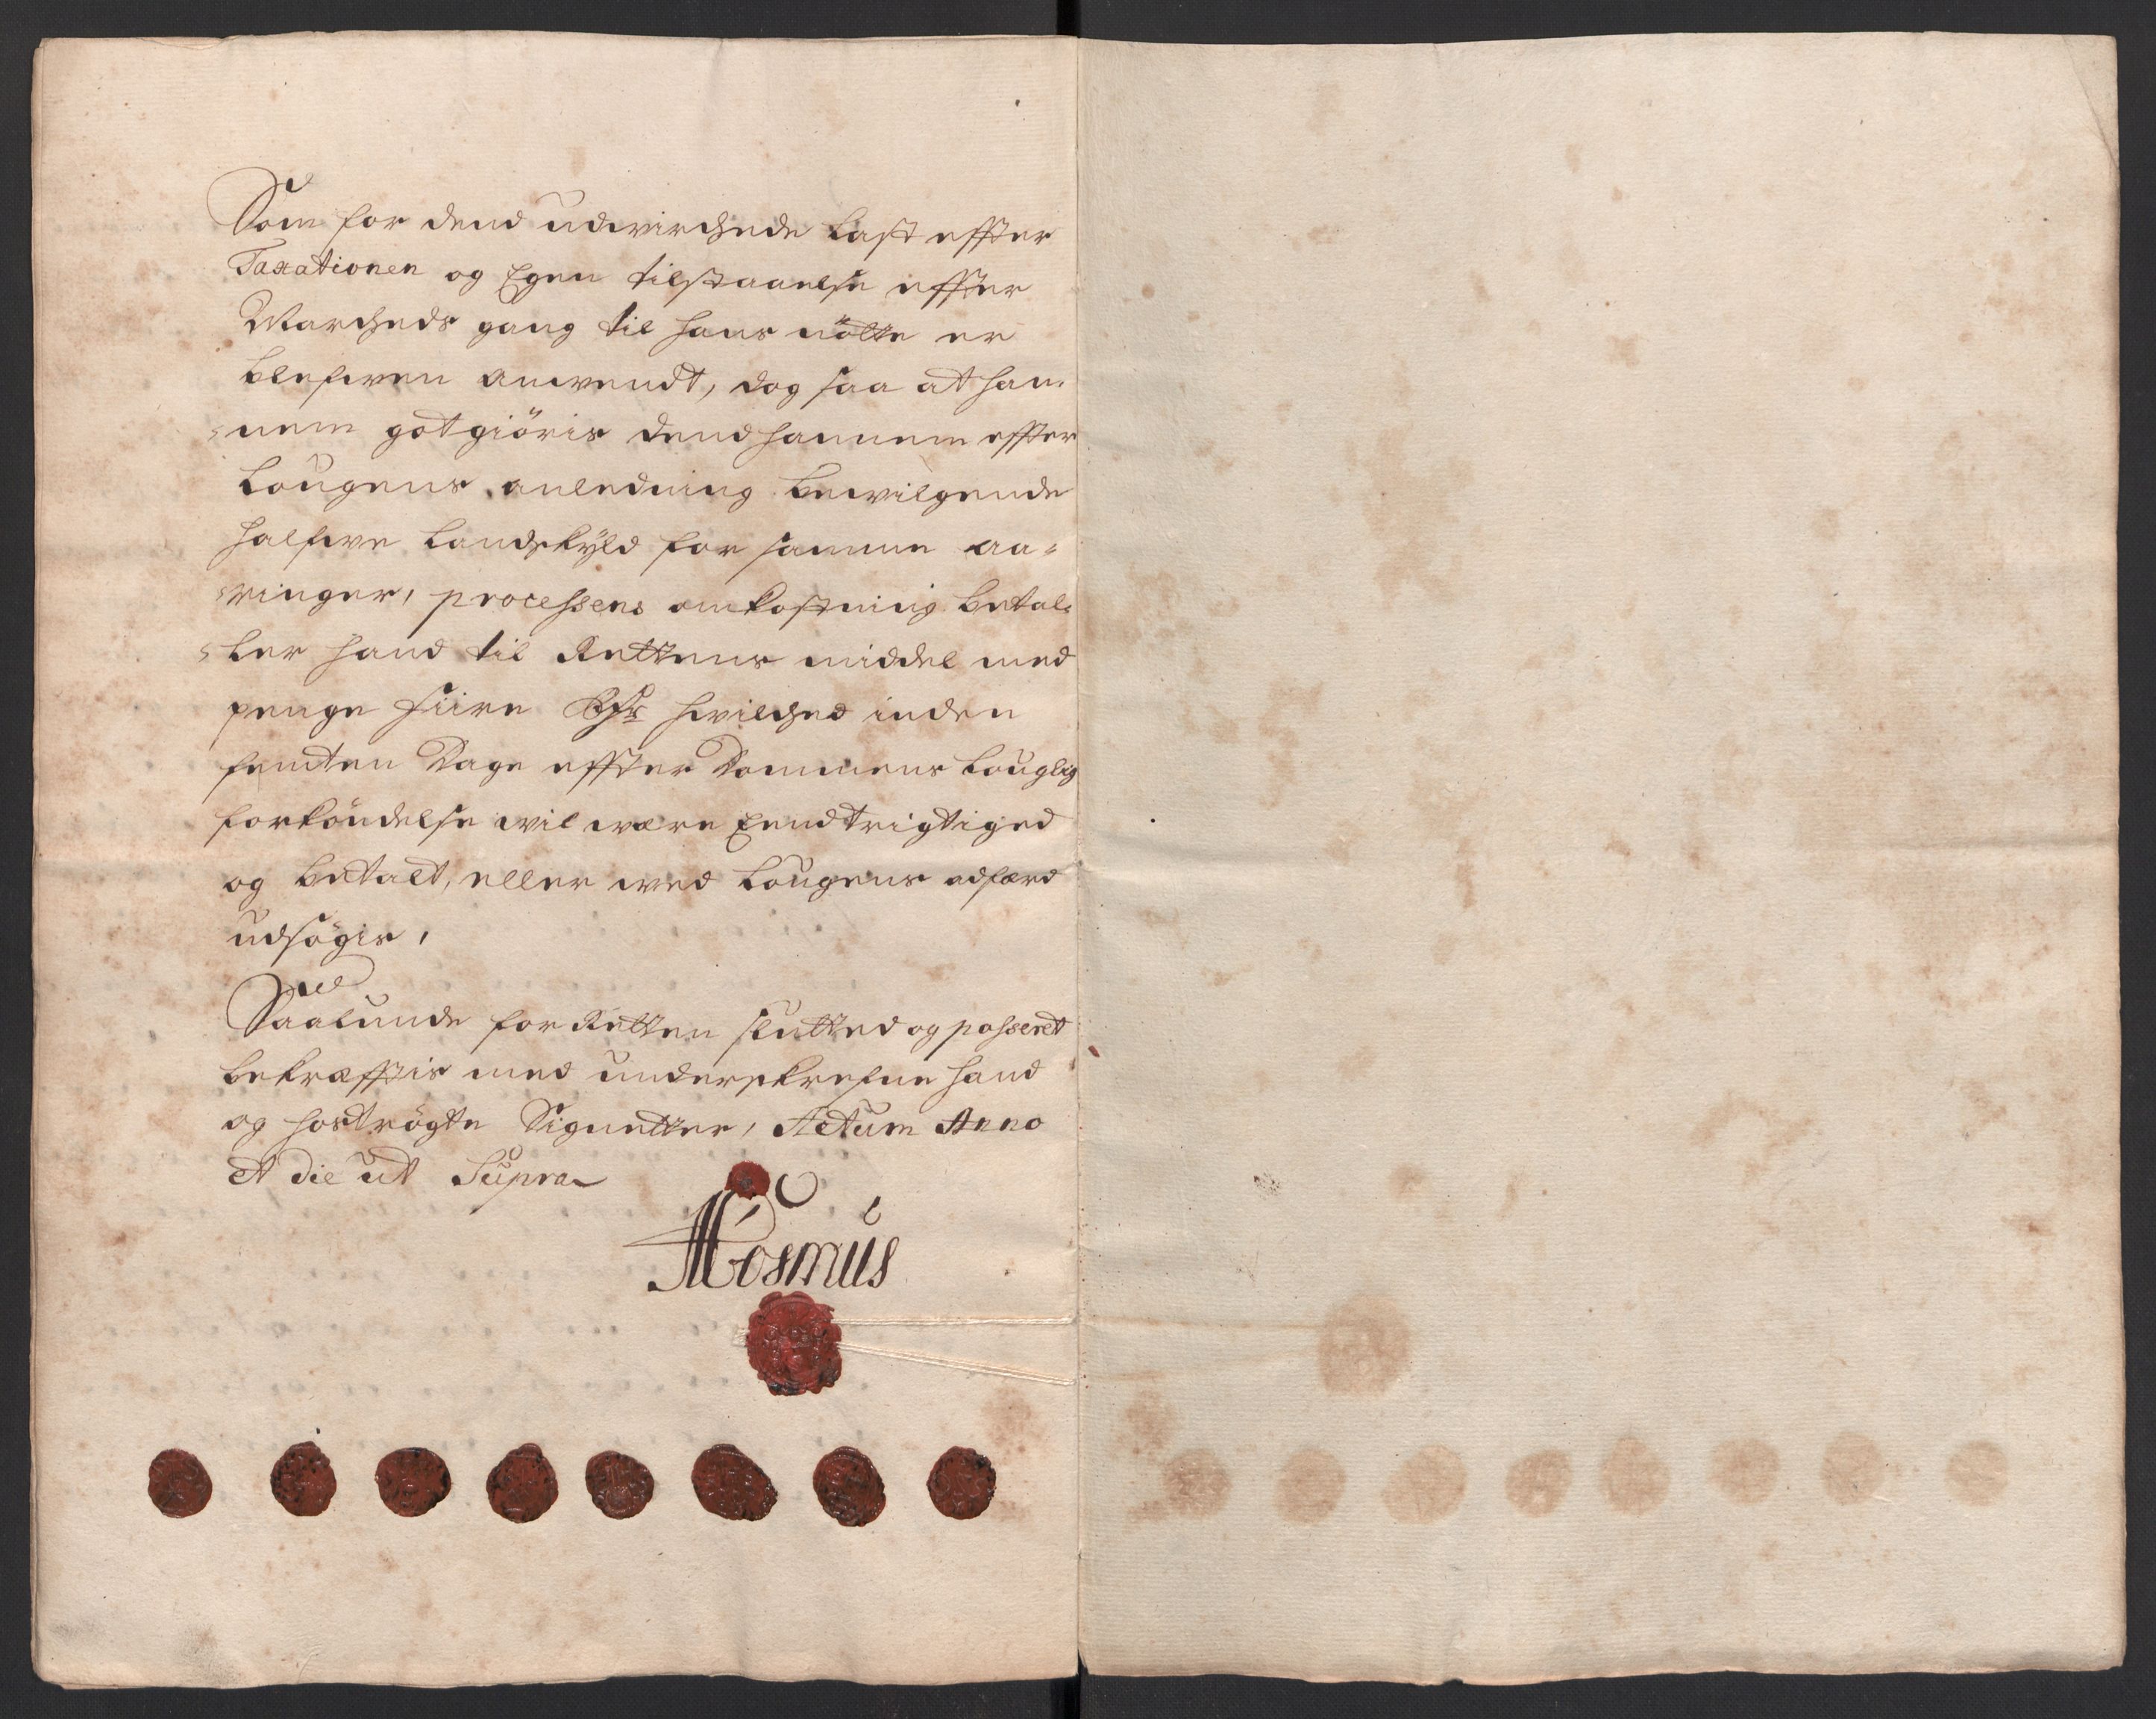 Som for dend udwirchede last effter
Taxationen og Egen tilstaaelse effter
Marcheds gang til hans nötte er
blefwen anwendt, dog saa at han-
nem gotgiöris dend hannem effter
Lougens anledning bewilgende
halfwe Landskyld for samme aa-
ringer, processens omkostning betal-
ler hand til Rettens middel med
penge fiire Rdr hwilched inden
femten Dage effter Dommens louglig
forköndelse wil wære Eendtrigtiged
og betalt, eller wed Lougens adfærd
udsögis,
Saalunde for Retten slutted og passeret
bekræfftis med underskrefne hand
og hoströgte Signetter, Actum Anno
et die ut Supra